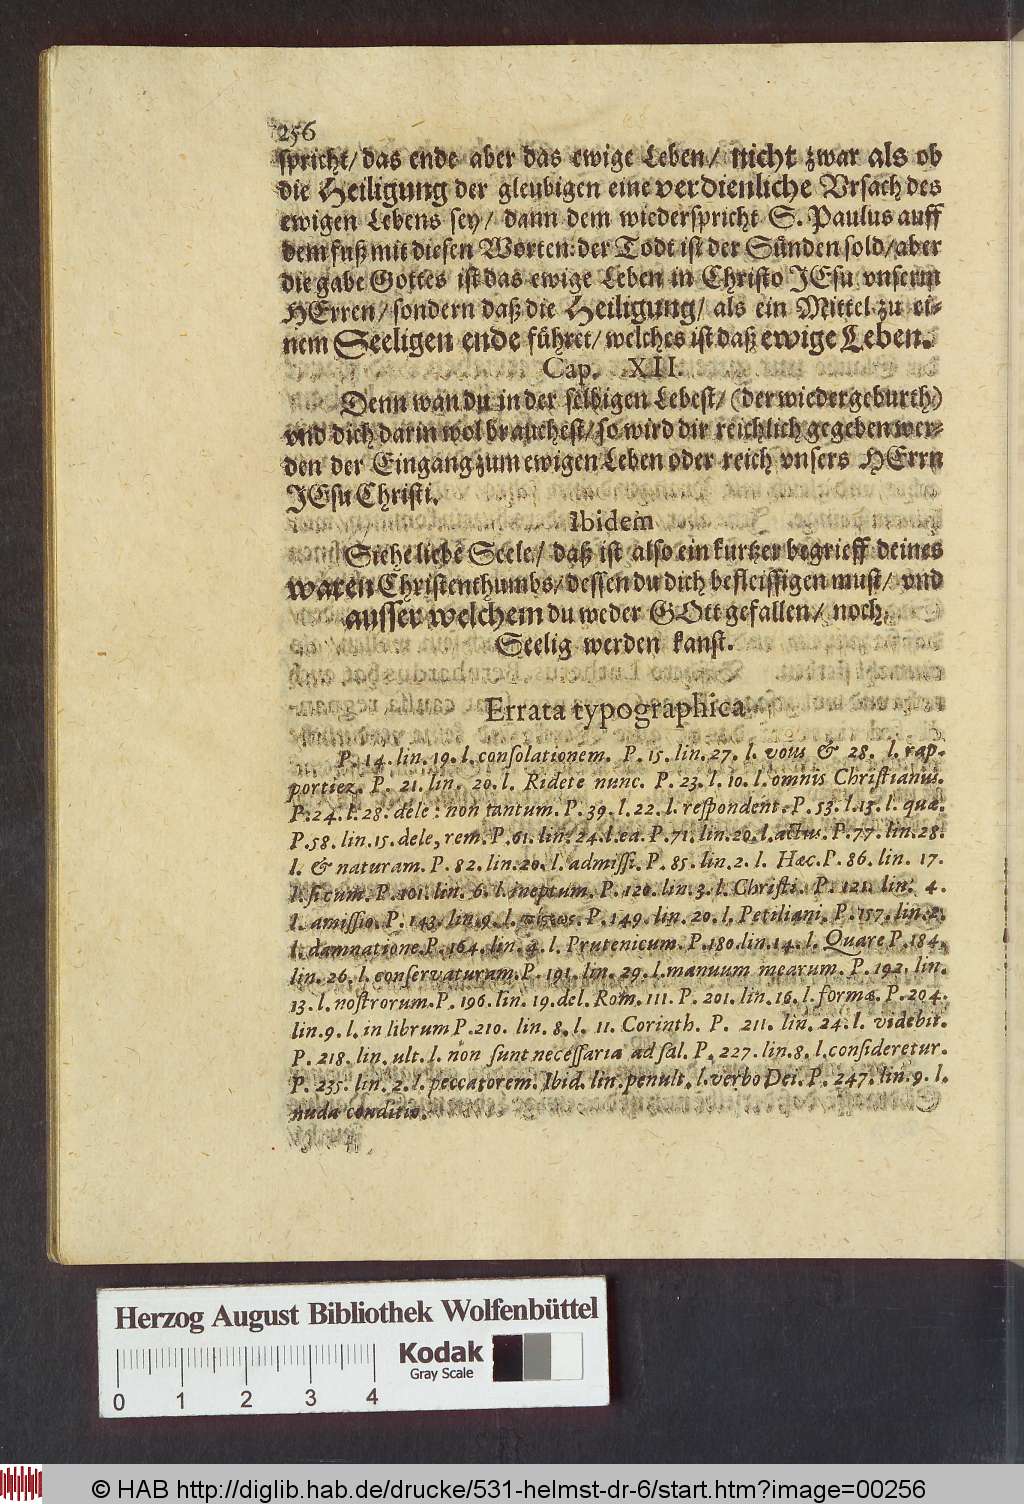 256
spricht/ das ende aber das ewige Leben/ nicht zwar als ob
die Heiligung der gleubigen eine verdienliche Vrsach des
ewigen Lebens sey/ dann dem wiederspricht S. Paulus auff
dem fuß mit diesen Worten: der Todt ist der Sünden sold/ aber
die gabe Gottes ist das ewige Leben in Christo JEsu vnserm
HErren/ sondern daß die Heiligung/ als ein Mittel zu ei-
nem Seeligen ende führet/ welches ist daß ewige Leben.
Cap. XII.
Denn wan du in der selbigen Lebest/ (der wiedergeburth)
vnd dich darin wol brauchest/ so wird dir reichlich gegeben wer-
den der Eingang zum ewigen Leben oder reich vnsers HErrn
JEsu Christi.
Ibidem
Siehe liebe Seele/ daß ist also ein kurtzer begrieff deines
waren Christenthumbs/ dessen du dich befleissigen must/ vnd
ausser welchem du weder GOtt gefallen/ noch
Seelig werden kanst.
Errata typographica
P. 14. lin. 19. l. consolationem. P. 15. lin. 27. l. vous & 28. l. rap-
portiez. P. 21. lin. 20. l. Ridete nunc. P. 23. l. 10. l. omnis Christianus.
P. 24. l. 28. dele: non tantum. P. 39. l. 22. l. respondent. P. 53. l. 13. l. quæ.
P. 58. lin. 15. dele, rem. P. 61. lin. 24. l. ea. P. 71. lin. 20. l. actus. P. 77. lin. 28.
l. & naturam. P. 82. lin. 20. l. admissi. P. 85. lin. 2. l. Hæc. P. 86. lin. 17.
l. sicum. P. 101. lin. 6. l. ineptum. P. 120. lin. 3. l. Christi. P. 121. lin. 4.
l. amissio. P. 143. lin. 9. l. P. 149. lin. 20. l. Petiliani. P. 157. lin. 2.
l. damnatione. P. 164. lin. 4. l. Prutenicum. P. 180. lin. 14. l. Quare P. 184.
lin. 26. l. conservaturum. P. 191. lin. 29. l. manuum mearum. P. 192. lin.
13. l. nostrorum. P. 196. lin. 19. del. Rom. III. P. 201. lin. 16. l. formæ. P. 204.
lin. 9. l. in librum P. 210. lin. 8. l. II. Corinth. P. 211. lin. 24. l. videbit.
P. 218. lin. ult. l. non sunt necessaria ad sal. P. 227. lin. 8. l. consideretur.
P. 235. lin. 2. l. peccatorem. Ibid. lin. penult. l. verbo Dei. P. 247. lin. 9. l.
nuda conditio.
Herzog August Bibliothek Wolfenbüttel
Kodak
Gray Scale
0 1 2 3 4
© HAB http://diglib.hab.de/drucke/531-helmst-dr-6/start.htm?image=00256